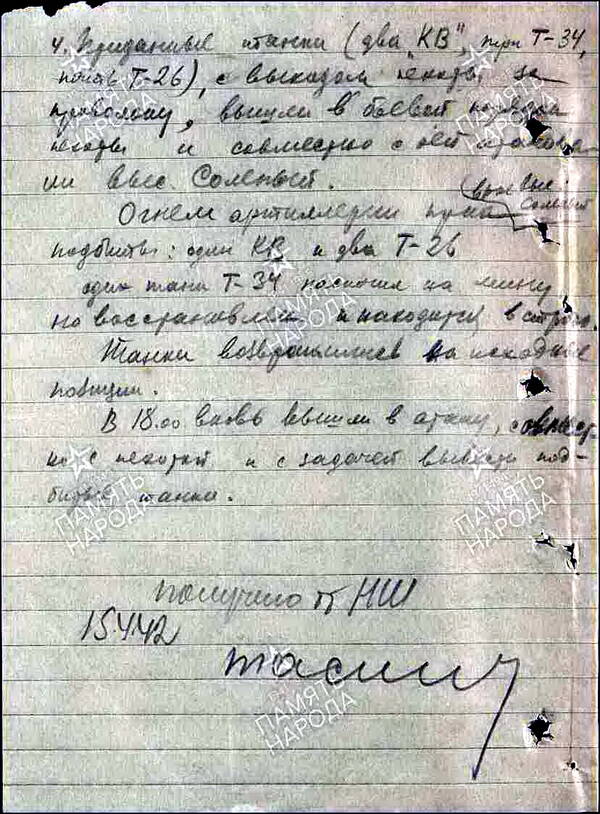 4. Приданные танки (два "КВ", три Т-34,
Т-26), с выходом пехоты за
проволоку, вышли в боевой порядок
пехоты и совместно с ней атакова-
ли выс. Соленый.
Огнем артиллерии пр-ка
(выс. Соленый
подбиты: один КВ и два Т-26
один танк Т-34 наскочил на мину
но восстановлен и находится в строю.
Танки возвратились на исходные
позиции.
В 18.00 вновь вышли в атаку, совмест-
но с пехотой и с задачей вывести под-
битые танки.
Получено от НШ
15.4.42
ПАМЯТЬ
НАРОДА